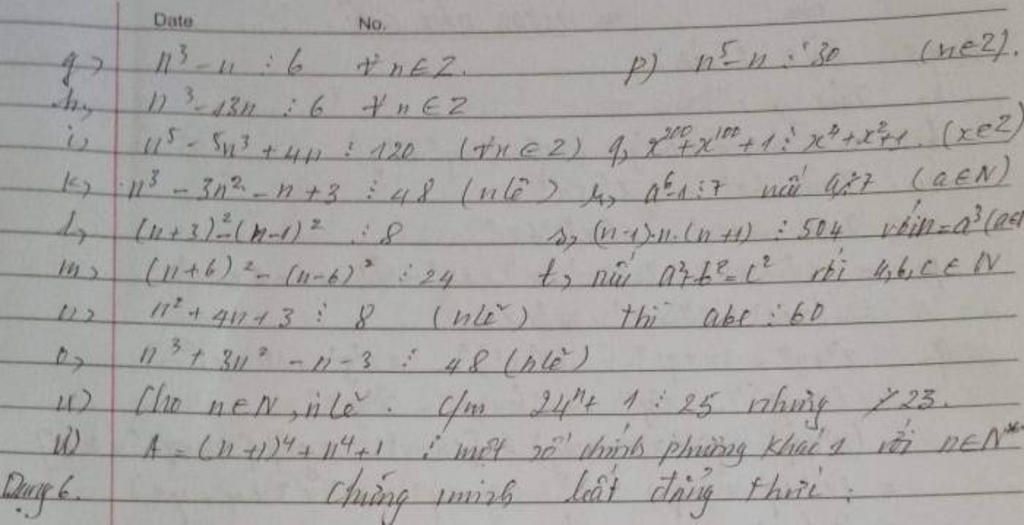 Date No.
g) n³ - n ⋮ 6 ∀n∈Z. p) n⁵ - n ⋮ 30 (n∈Z).
h, n³ - 13n ⋮ 6 ∀n∈Z
i) n⁵ - 5n³ + 4n ⋮ 120 (∀n∈Z) q, x²⁰⁰ + x¹⁰⁰ + 1 ⋮ x⁴ + x² + 1. (x∈Z)
k, n³ - 3n² - n + 3 ⋮ 48 (n lẻ) a⁶ - 1 ⋮ 7 nếu (a∈N)
l, (n+3)² - (n-1)² ⋮ 8 s, (n-1).n.(n+1) ⋮ 504 với n = a³ (a∈
m, (n+6)² - (n-6)² ⋮ 24 t, nếu a² + b² = c² với a, b, c ∈ N
n² + 4n + 3 ⋮ 8 (n lẻ) thì abc ⋮ 60
o, n³ + 3n² - n - 3 ⋮ 48 (n lẻ)
u) Cho n∈N, n lẻ. C/m 24ⁿ + 1 ⋮ 25 nhưng ⋮̸ 23.
A = (n+1)⁴ + n⁴ + 1 ⋮ một số chính phương khác 1 với n∈N*
Dạng 6. Chứng minh bất đẳng thức: